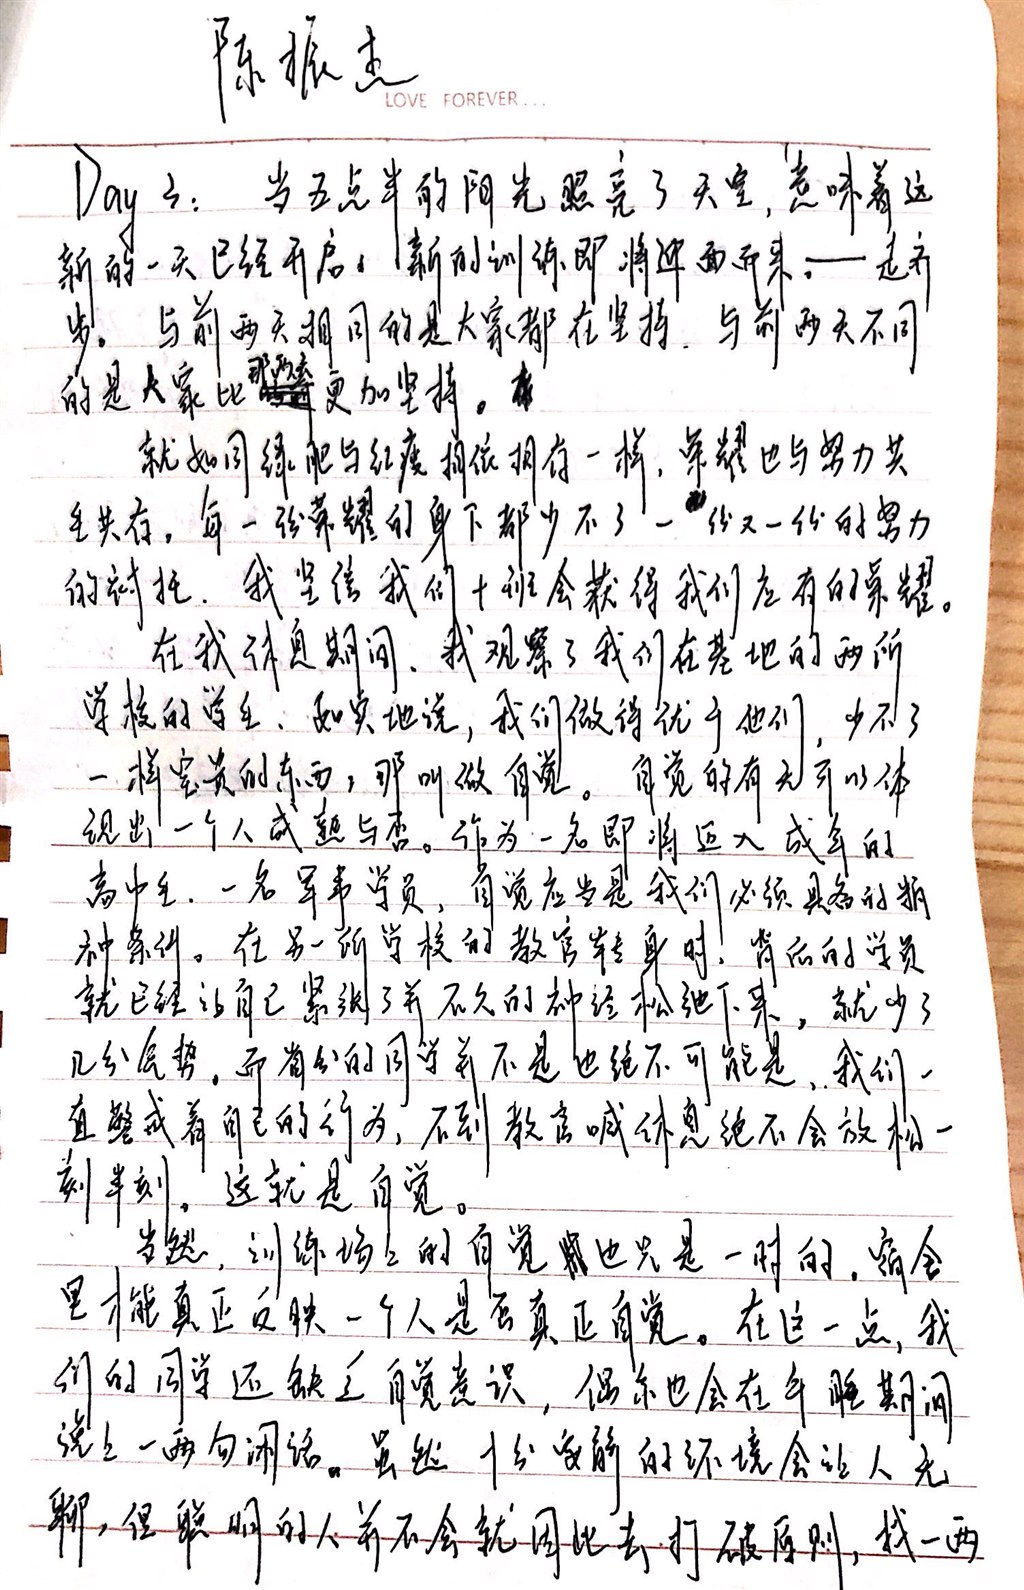 陈振杰
LOVE FOREVER...
Day 3: 当五点半的阳光照亮了天空,意味着这
新的一天已经开启。新的训练即将迎面而来。——走齐
步。与前两天相同的是大家都在坚持.与前两天不同
的是大家比那两天更加坚持。
就如同绿肥与红瘦相依相存一样,荣耀也与努力共
生共存。每一份荣耀的身下都少不了一份又一份的努力
的衬托.我坚信我们十班会获得我们应有的荣耀。
在我休息期间、我观察了我们在基地的两所
学校的学生、如实地说,我们做得优于他们,少不了
一样宝贵的东西,那叫做自觉。自觉的有无可以体
现出一个人成熟与否。作为一名即将迈入成年的
高中生.一名军事学员,自觉应当是我们必须具备的
条件。在另一所学校的教官转身时.背后的学员
就已经让自己紧绷了并不久的神经松弛下来,就少了
几分气势。而省公的同学并不是也绝不可能是、我们一
直警戒着自己的行为,不到教官喊休息绝不会放松一
刻半刻。这就是自觉。
当然,训练场上的自觉也只是一时的.宿舍
里才能真正反映一个人是否真正自觉。在这一点,我
们的同学还缺乏自觉意识,偶尔也会在午睡期间
说上一两句闲话。虽然十分安静的环境会让人无
聊,但聪明的人并不会就因此去打破原则,找一两